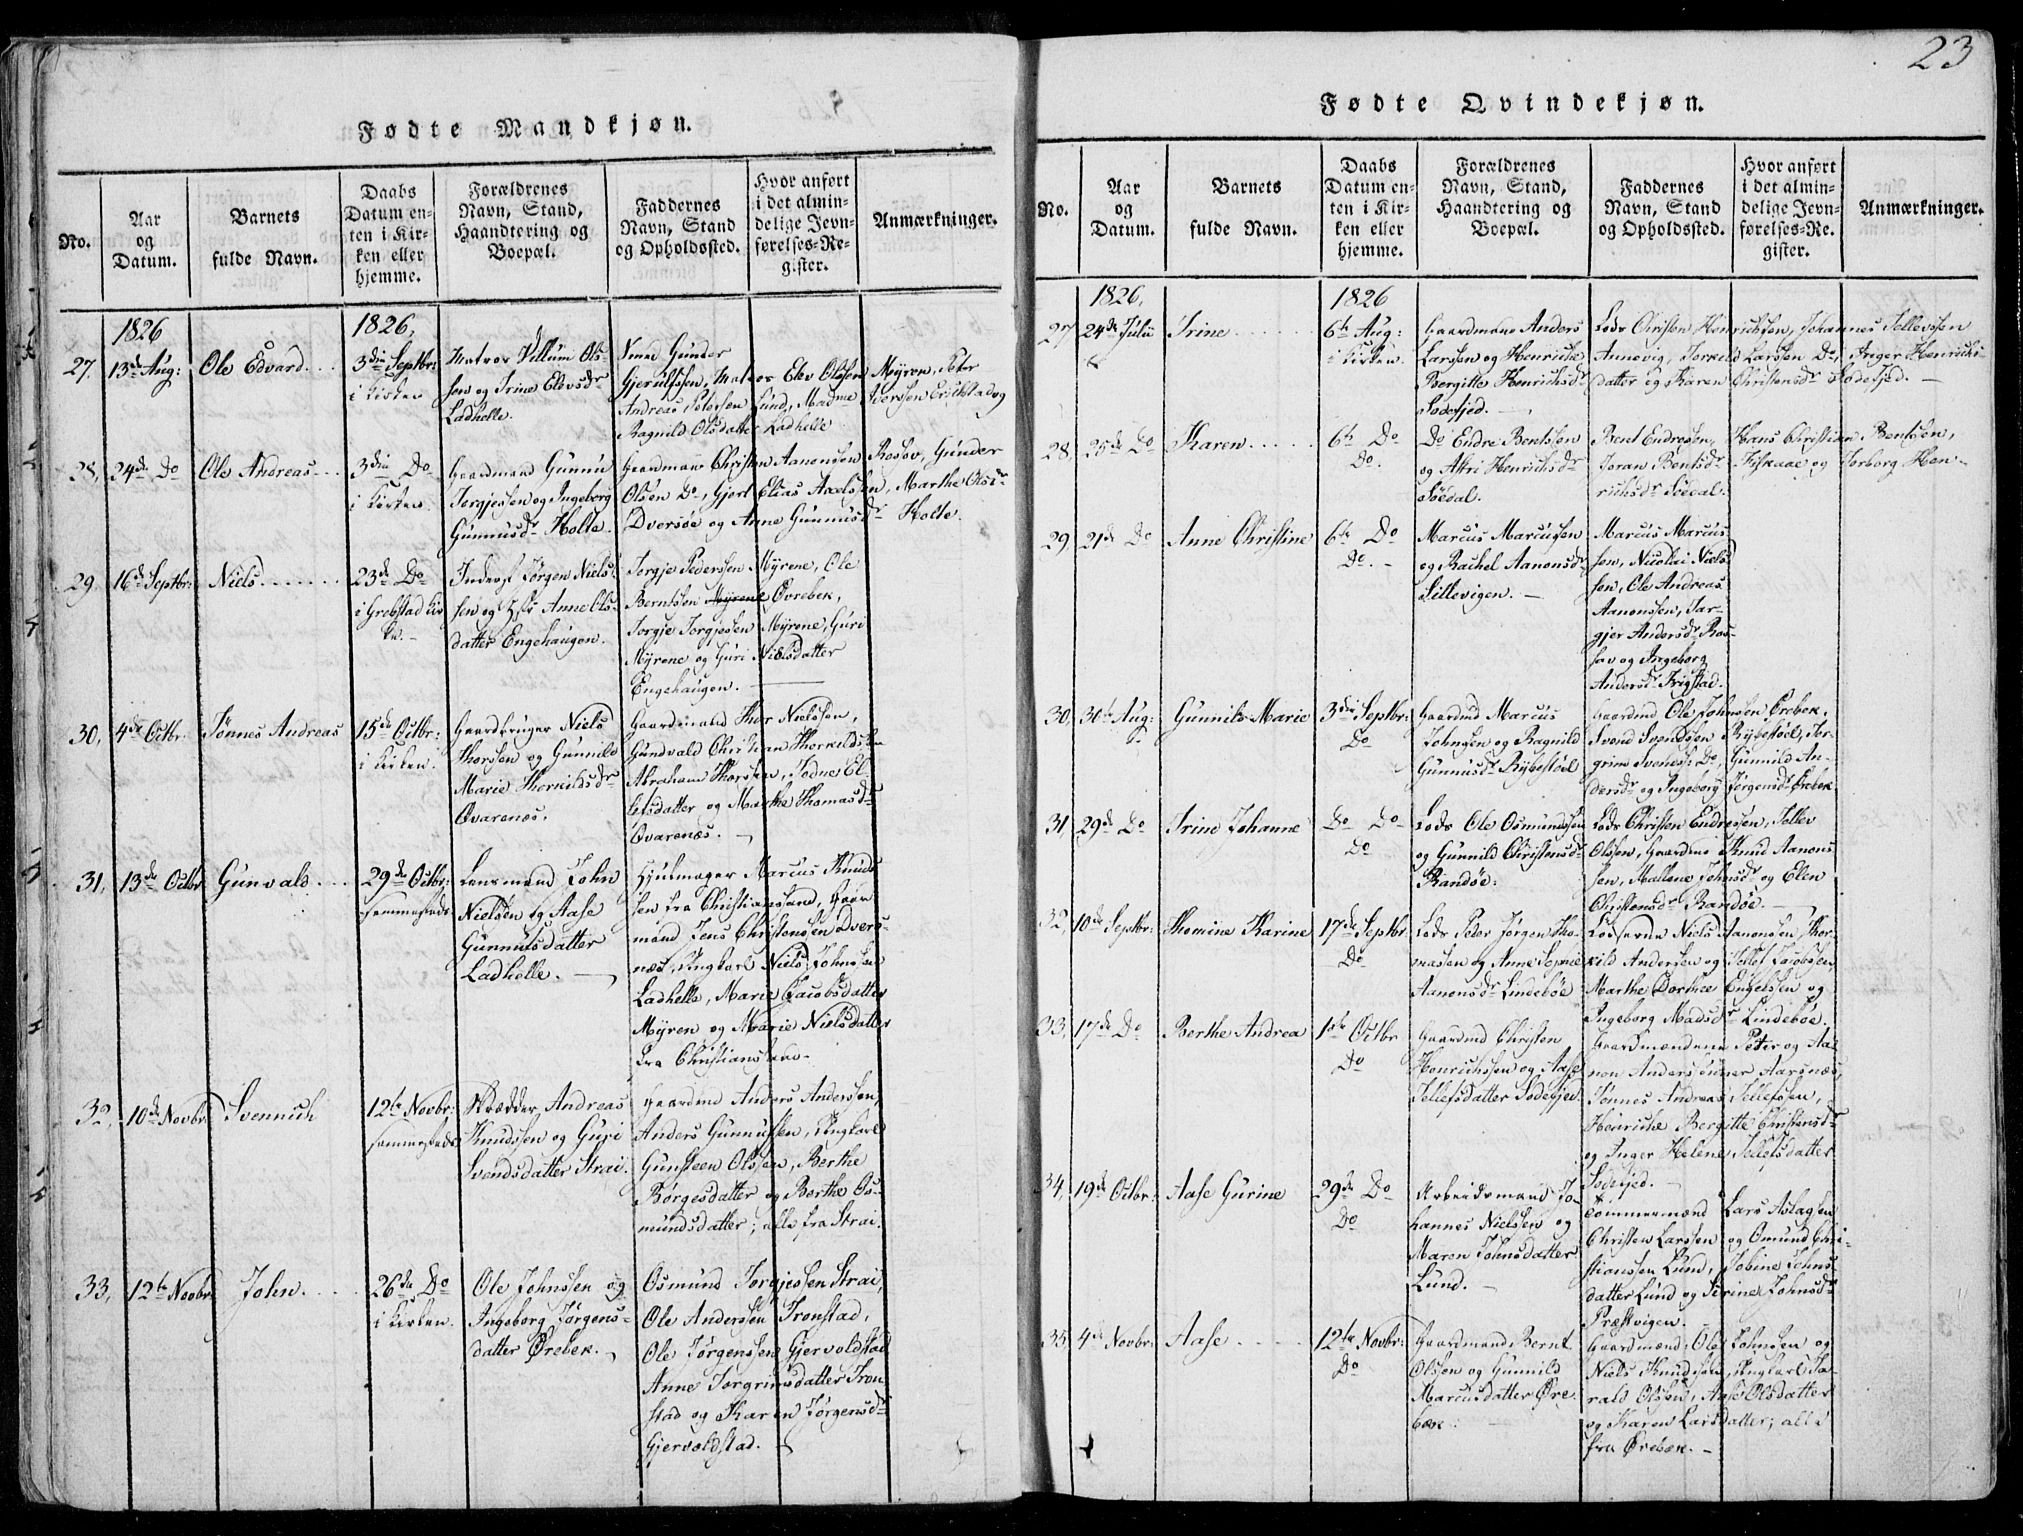 23
Fødte Mandkjøn.
No.
Aar
og
Datum.
Barnets
fulde Navn.
Daabs
Datum en-
ten i Kir-
ken eller
hjemme.
Forældrenes
Navn, Stand,
Haandtering og
Boepæl.
Faddernes
Navn, Stand
og Opholdssted.
Hvor anført
i det almin-
delige Jevn-
førelses-Re-
gister.
Anmærkninger.
1826
1826,
27. 13de Aug: Ole Edvard
3die Septbr:
i Kirken
Matros Villum Ols-
sen og Trine Elevsdr
Ladhelle.
Gunder
Gjerulfssen, Matros Elev Olssen Myren, Peter
Andreas Petersen Lund, Madme Iversen Erikstad og
Ragnild Olsdatter Ladhelle
28, 24de Do Ole Andreas
3die Do
i Kirken.
Gaardmand Gunnu
Torgjessen og Ingeborg
Gunnusdr Holte.
Gaardmand Christen Aanonsen Rosov, Gunder
Olsen Do, Gjert Elias Axelsen, Marthe Olsdr
Dversøe og Anne Gunnusdr Holte.
29. 16de Septbr: Niels
23de Do
i Grebstad Kir
ke.
Inderst Jørgen Niels-
sen og Hst. Anne Ols-
datter Engehaugen.
Torgje Pedersen Myrene, Ole
Berntssen Myrene Øvrebek,
Torgje Torgjesen Myrene, Guri
Myrene og Guri Nielsdatter
Engehaugen.
30, 4de Octbr. Tønnes Andreas
15de Octbr:
i Kirken.
Gaardbruger Niels
Thorssen og Gunnild
Marie Thorkildsdr
Qvarenæs.
Gaardmand Thor Nielssen,
Gundvald Christian Thorkildsen
Abraham Thorssen, Todne El-
lefsdatter og Marthe Thomasdr
Qvarenæs.
31, 13de Octbr Gunvald
29de Octbr:
sammesteds
Lensmand John
Nielsen og Aase
Gunnulfsdatter
Ladhelle.
Hjulmager Marcus Knuds
sen fra Christianssand, Gaar
mand Jens Christensen Dvers-
næs, Ungkarl Niels Johnsen
Ladhelle, Marie Jacobsdatter
Myren og Marie Nielsdatter
fra Christianssand.
32, 10de Novbr: Svennich
12te Novbr:
sammesteds
Skrædder Andreas
Knudssen og Guri
Svendsdatter Strai.
Gaardmd Anders Anderssen,
Anders Gunnufsen, Ungkarl
Gunsteen Olssen, Berthe
Børgesdatter og Berthe Os-
mundsdatter; alle fra Strai.
33, 12te Novbr. John
26de Do
i Kirken.
Ole Johnssen og
Ingeborg Jørgens-
datter Ørebek.
Osmund Torgjessen Strai,
Ole Anderssen Tronstad,
Ole Jørgenssen Gjervoldstad
Anne Torgrimsdatter Tron
stad og Karen Jørgensdr
Gjervoldstad.
Fødte Qvindekjøn.
No.
Aar
og
Datum.
Barnets
fulde Navn.
Daabs
Datum en-
ten i Kir-
ken eller
hjemme.
Forældrenes
Navn, Stand,
Haandtering og
Boepæl.
Faddernes
Navn, Stand
og Opholdssted.
Hvor anført
i det almin-
delige Jevn-
førelses-Re-
gister.
Anmærkninger.
1826,
1826
27 24de Julii Trine
6te Aug:
i Kirken.
Gaardmand Anders
Larssen og Henriche
Bergitte Henrichsdr
Sodefjed.
Lods Christen Henrichssen, Johannes Tellevssen
Annevig, Torkild Larssen Do, Inger Henrichs-
datter og Karen Christensdr Sodefjed.
28 25de Do Karen
6te Do
Do.
Do Endre Bentssen
og Alkri Henrichsdr
Søedal.
Bent Endresen, Hans Christian Bentssen,
Joran Bentsdr Fiskaae og Torborg Hen-
richsdr Søedal.
29 21de Do Anne Christine
6te Do
Do.
Marcus Marcussen
og Rachel Aanonsdr
Sittevigen.
Marcus Marcus
sen, Nicolai Niels
sen, Ole Andreas
Aanonssen, Tar-
gjer Andersdr Ros-
sav og Ingeborg
Andersdr Frigstad.
30, 30te Aug: Gunnild Marie
3die Septbr:
Do
Gaardmd Marcus
Johnsen og Ragnild
Gunnusdr Rybestøel
Gaardmd Ole Johnsen Ørebek,
Svend Svendsen Rybestøel, Tor-
grim Svends: Do, Gunnild An-
dersdr og Ingeborg Jørgensdr Ørebek
31, 29de Do Trine Johanne
Do Do
Do
Lods Ole Osmundssen
og Gunnild Christensdr
Randøe.
Lods Christen Endressen, Tellev
Olssen, Gaardmd Knud Aanons
sen, Mallene Johnsdr og Elen
Christensdr Randøe.
32, 10de Septbr: Thomine Karine
17de Septbr
Do
Lods Peder Jørgen Tho-
massen og Anne Sophie
Aanonsdr Lindebøe
Lodserne Niels Aanonsen, Thor-
kild Andersen og Tellef Jacobsen,
Marthe Dorthee Engelsen og
Ingeborg Madsdr Lindebøe.
33, 17de Do Berthe Andrea
1ste Octbr
Do
Gaardmd Christen
Henrichssen og Aase
Tellefsdatter Sodefjed
Gaardmændene Peter og Aa-
non Anderssønner Aarsnæs,
Tønnes Andreas Tellefsen,
Henriche Bergitte Christensdr
og Inger Helene Tellefsdatter
Sodefjed.
34, 19de Octbr: Aase Gurine
29de Do
Do
Arbeidsmand Jo-
hannes Nielssen og
Maren Johnsdatter
Lund.
Tommermænd Lars Aslagsen
Christen Larssen og Omund Chri-
stianssen Lund, Tobine Johns-
datter Lund og Sirine Johnsdr
Præstvigen.
35, 4de Novbr: Aase
12te Novbr:
Do
Gaardmand Bernt
Olssen og Gunnild
Marcusdatter Øre
bæk.
Gaardmænd: Ole Johnsen og
Niels Knudsen, Ungkarl Ta-
rald Olssen, Aase Olsdatter
og Karen Larsdatter; alle
fra Ørebæk.